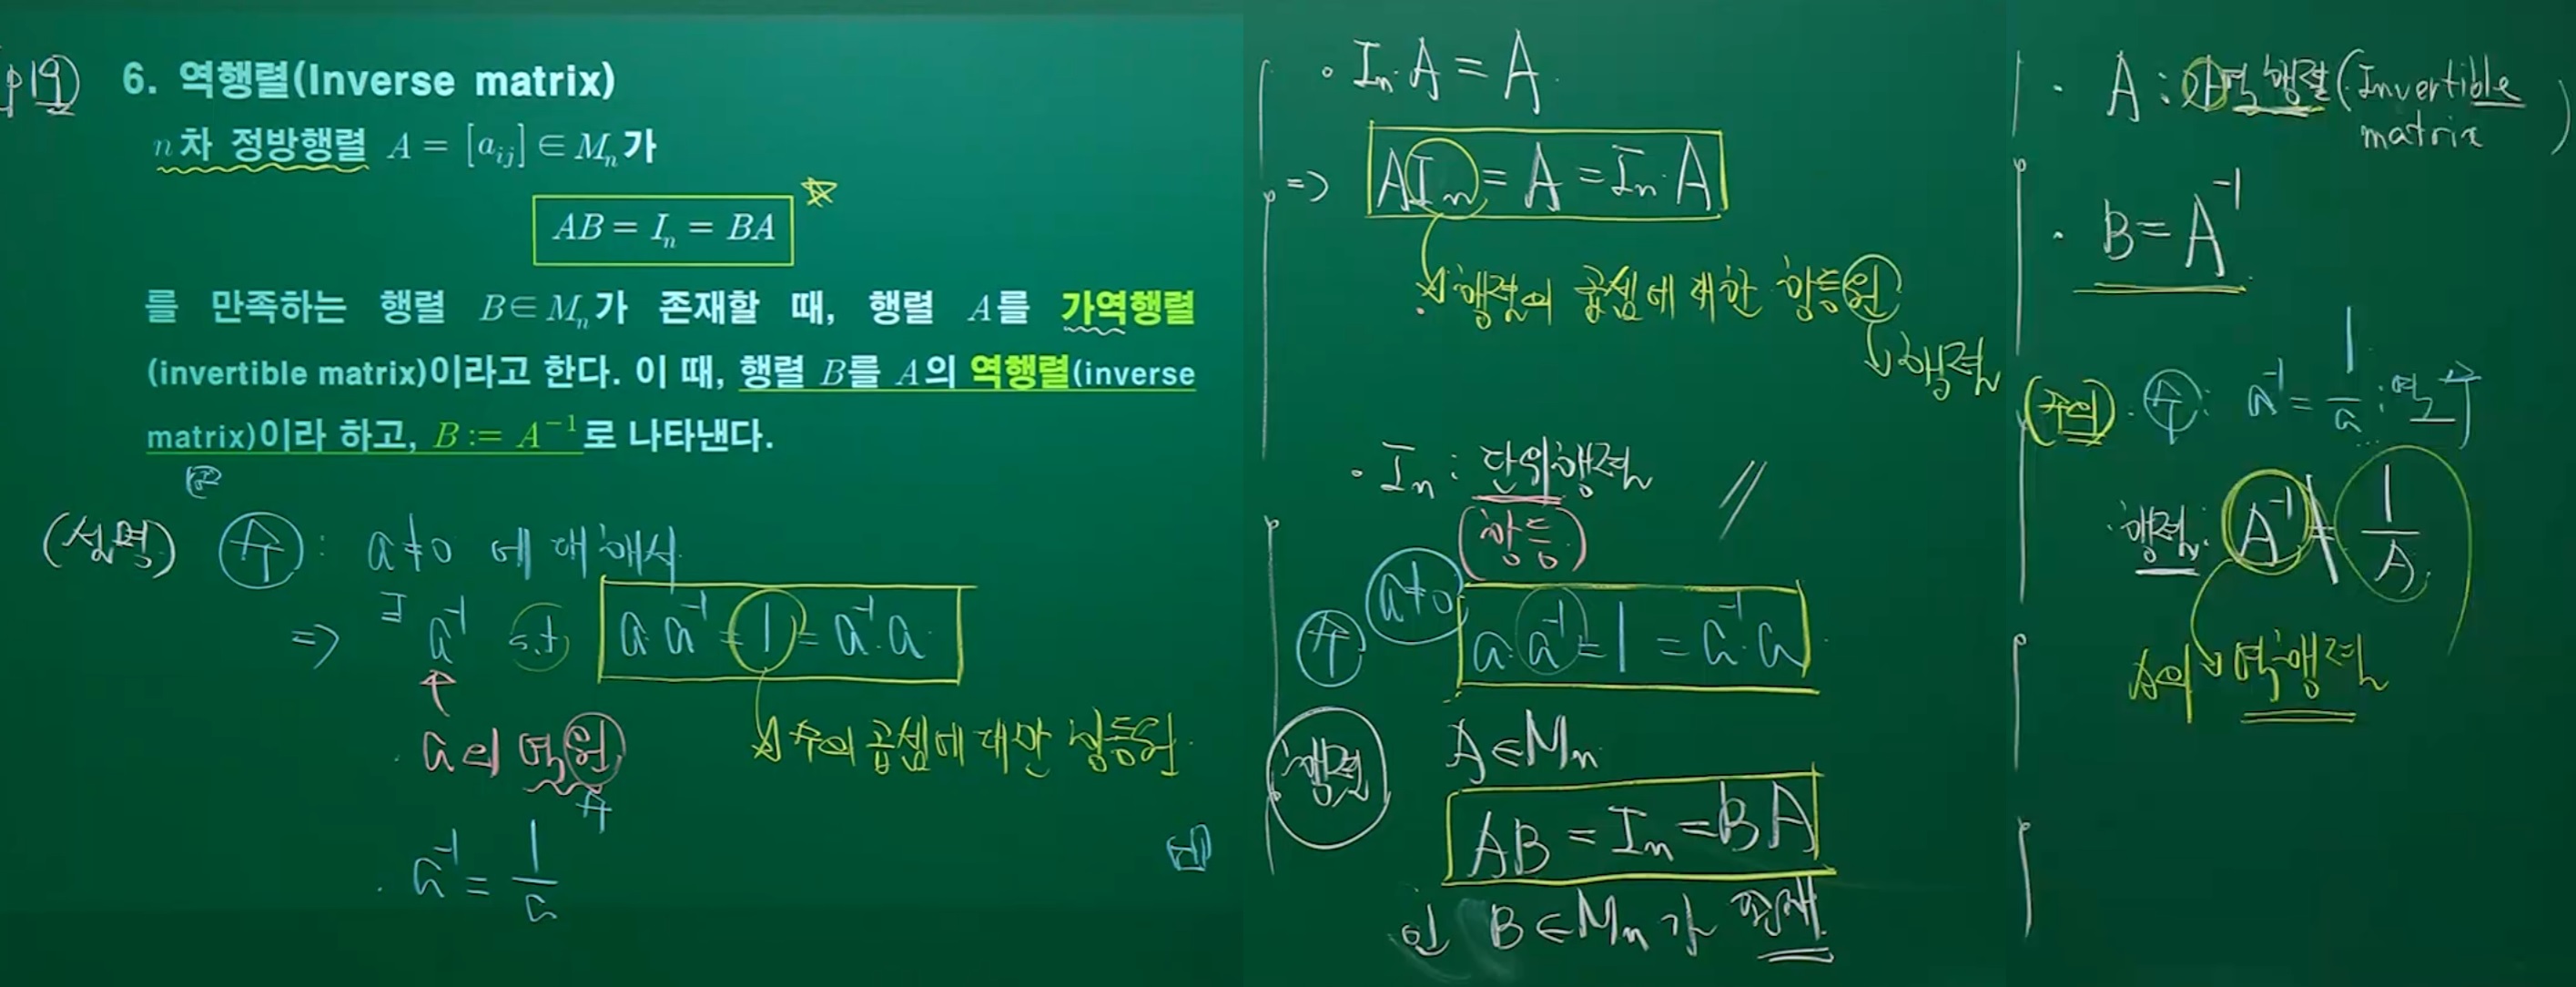 p19
6. 역행렬(Inverse matrix)
n차 정방행렬 A = [a_{ij}] ∈ M_n가
AB = I_n = BA
를 만족하는 행렬 B∈M_n가 존재할 때, 행렬 A를 가역행렬
(invertible matrix)이라고 한다. 이 때, 행렬 B를 A의 역행렬(inverse
matrix)이라 하고, B := A^{-1}로 나타낸다.
(설명) 수 : a≠0 에 대해서
⇒ ∃ a^{-1} s.t a·a^{-1} = 1 = a^{-1}·a
a의 역원
수
수의 곱셈에 대한 항등원
· a^{-1} = 1/a
· I_n A = A
⇒ A I_n = A = I_n · A
행렬의 곱셈에 대한 항등원
행렬
· I_n : 단위행렬 //
(항등)
수 a≠0 a·a^{-1} = 1 = a^{-1}·a
행렬 A∈M_n
AB = I_n = BA
인 B∈M_n가 존재
· A : 가역행렬 (Invertible
matrix)
· B = A^{-1}
(주의) · 수 : a^{-1} = 1/a : 역수
· 행렬 : A^{-1} ≠ 1/A
A의 역행렬